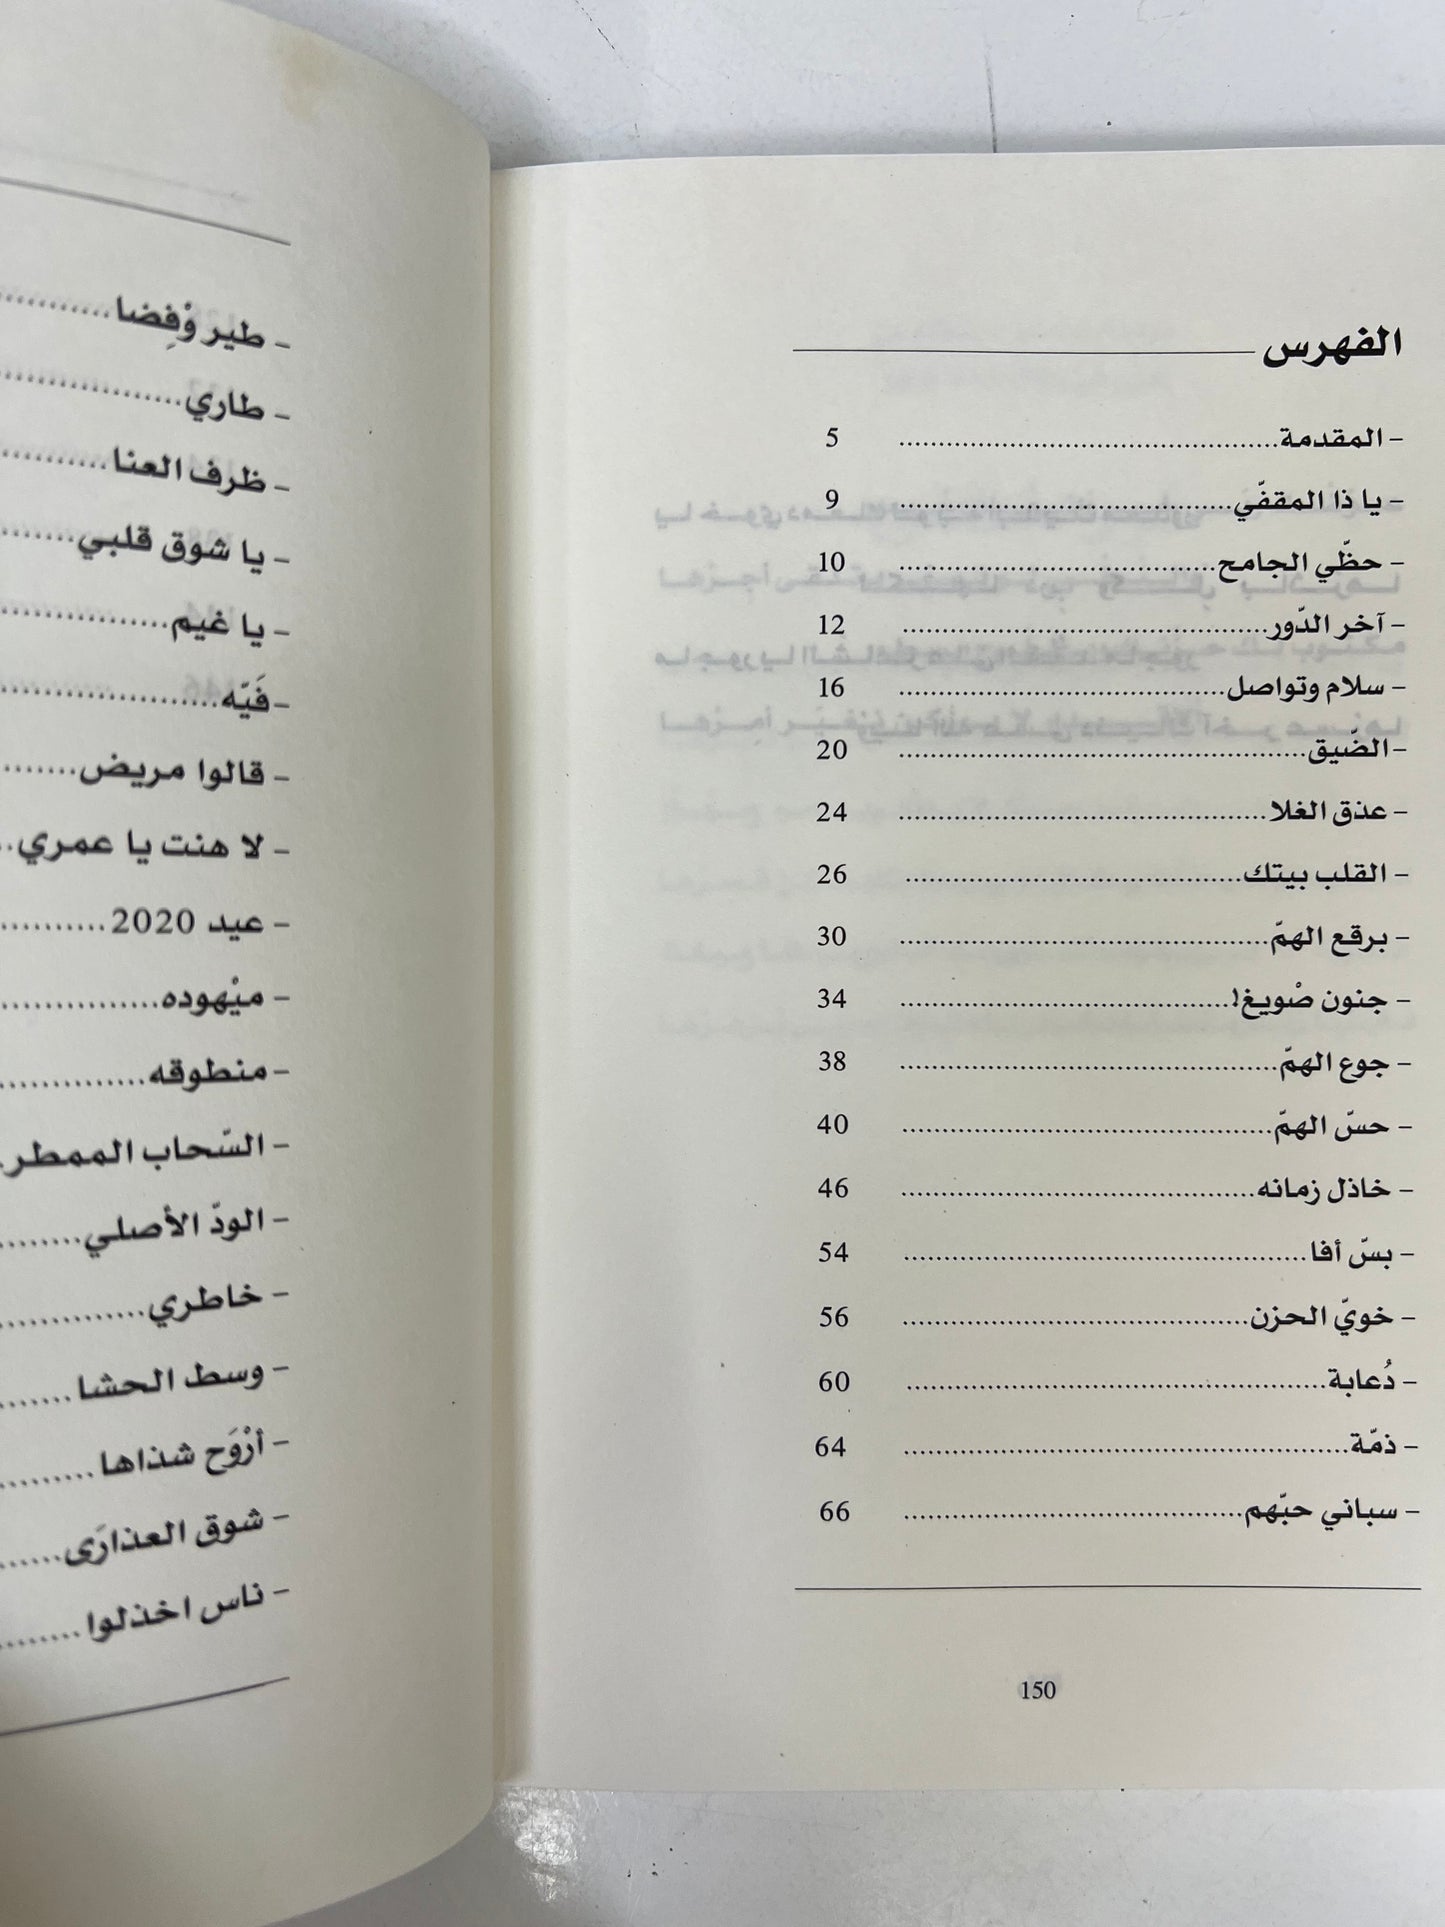 الفهرس
- المقدمة........................................ 5
- يا ذا المقفّي........................................ 9
- حظّي الجامح........................................ 10
- آخر الدّور........................................ 12
- سلام وتواصل........................................ 16
- الضّيق........................................ 20
- عذق الغلا........................................ 24
- القلب بيتك........................................ 26
- برقع الهمّ........................................ 30
- جنون صْويغ!........................................ 34
- جوع الهمّ........................................ 38
- حسّ الهمّ........................................ 40
- خاذل زمانه........................................ 46
- بسّ أفا........................................ 54
- خويّ الحزن........................................ 56
- دُعابة........................................ 60
- ذمّة........................................ 64
- سباني حبّهم........................................ 66
150
- طير وْفِضا...........
- طاري................
- ظرف العنا...........
- يا شوق قلبي........
- يا غيم...............
- فَيّه....................
- قالوا مريض.......
- لا هنت يا عمري..
- عيد 2020..........
- ميْهوده..............
- منطوقه..............
- السّحاب الممطر.
- الودّ الأصلي........
- خاطري..............
- وسط الحشا......
- أرْوَح شذاها.........
- شوق العذارَى......
- ناس اخذلوا........